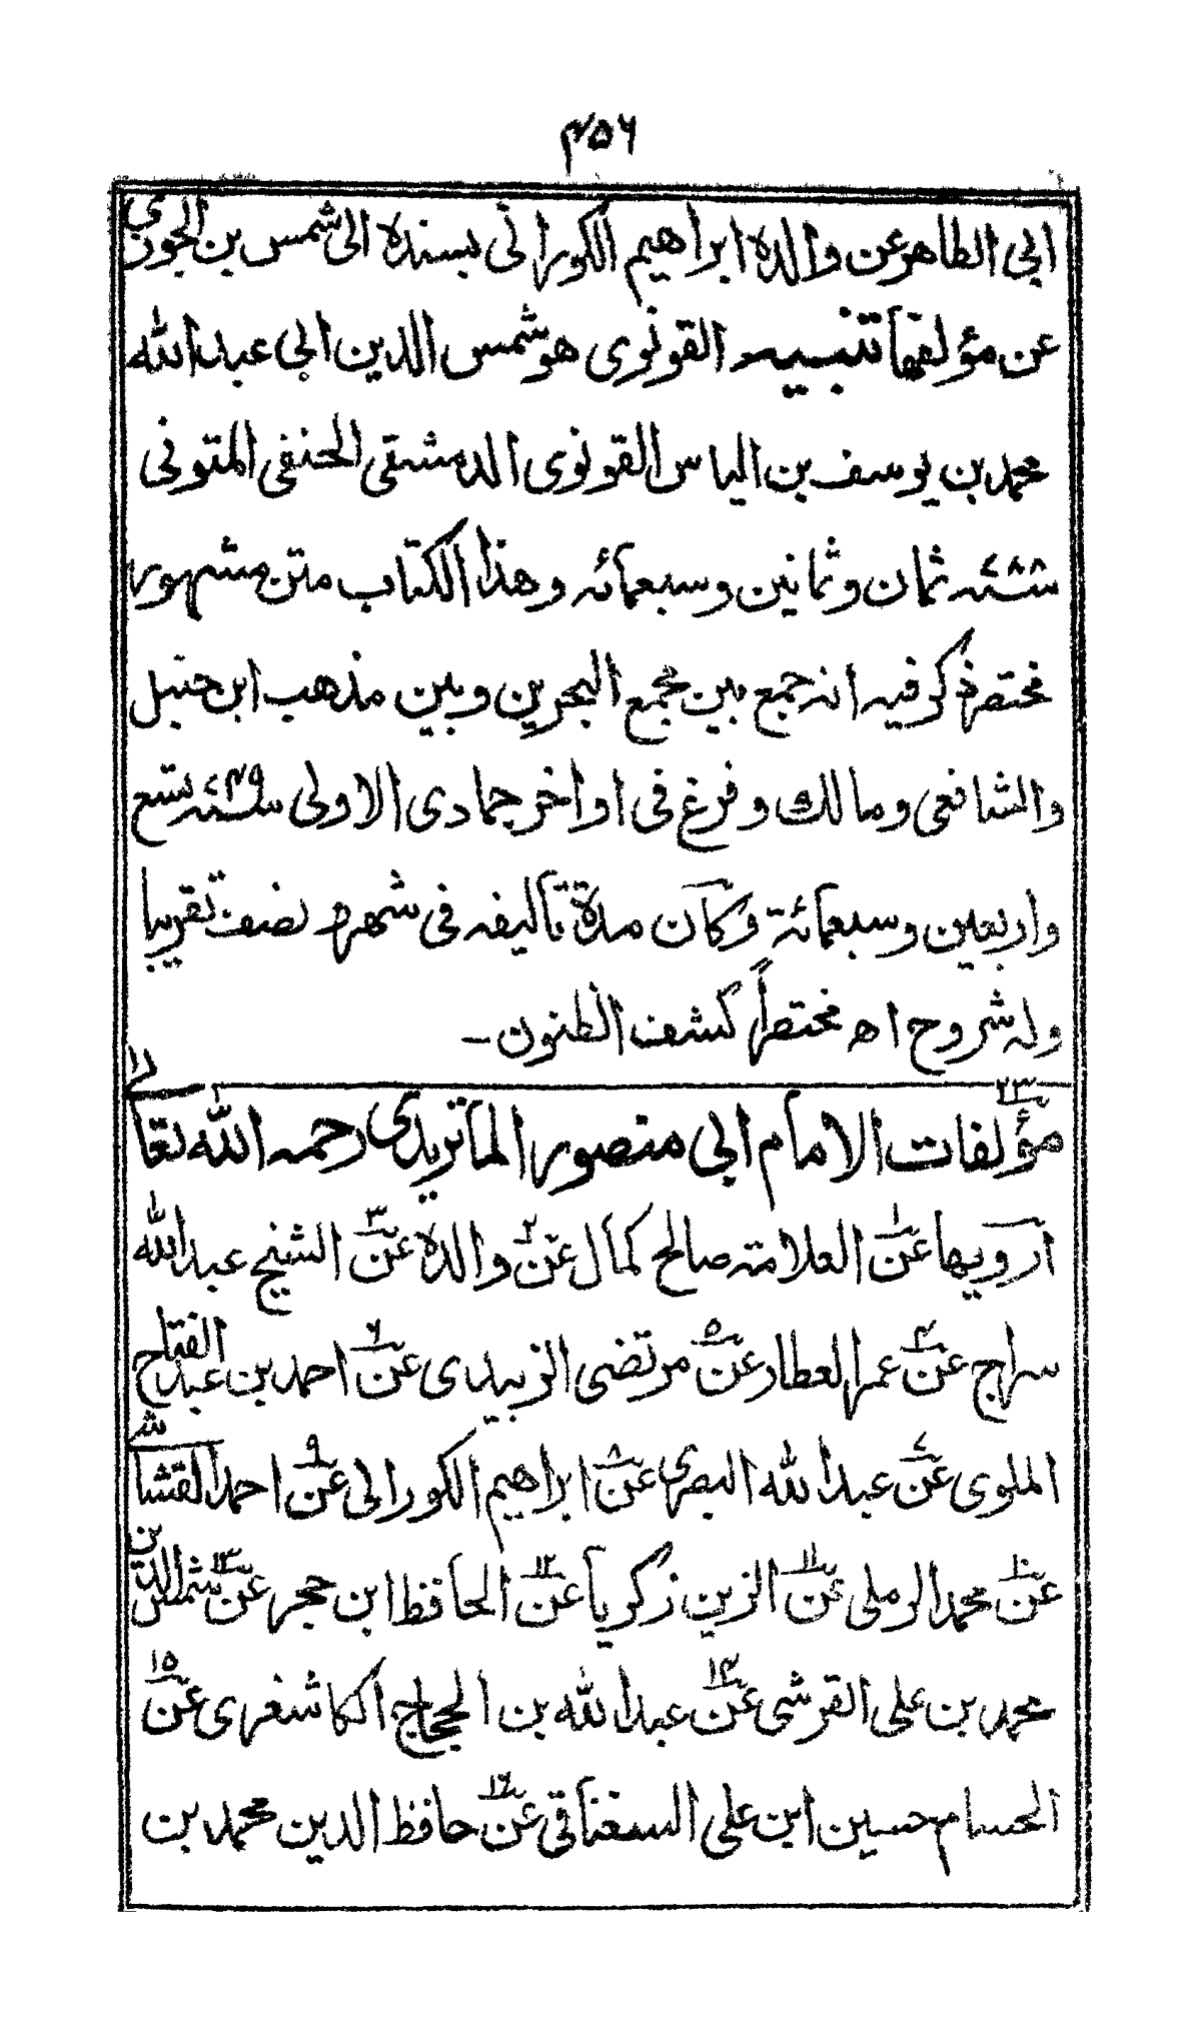 ۴۵۶
ابی الطاهر عن والده ابراهیم الکورانی بسنده الی شمس بن الجوزی
عن مؤلفها تنبیه القونوی هو شمس الدین ابی عبد الله
محمد بن یوسف بن الیاس القونوی الدمشقی الحنفی المتوفی
سنة ۷۸۸ ثمان وثمانین وسبعمائه وهذا الکتاب متن مشهور
مختصر ذکر فیه انه جمع بین مجمع البحرین وبین مذهب ابن حنبل
والشافعی ومالك وفرغ فی اواخر جمادی الاولی سنة ۷۴۹ تسع
واربعین وسبعمائة وکان مدة تألیفه فی شهر ونصف تقریبا
وله شروح اھ مختصراً کشف الظنون ـ
۲۳ مؤلفات الامام ابی منصور الماتریدی رحمه الله تعالی
ارویها عن۱ العلامة صالح کمال عن۲ والده عن۳ الشیخ عبد الله
سراج عن۴ عمر العطار عن۵ مرتضی الزبیدی عن۶ احمد بن عبد الفتاح
الملوی عن۷ عبد الله البصری عن۸ ابراهیم الکورانی عن۹ احمد القشاشی
عن۱۰ محمد الرملی عن۱۱ الزین زکریا عن۱۲ الحافظ ابن حجر عن۱۳ شمس الدین
محمد بن علی القرشی عن۱۴ عبد الله بن الحجاج الکاشغری عن۱۵
الحسام حسین ابن علی السغناقی عن۱۶ حافظ الدین محمد بن